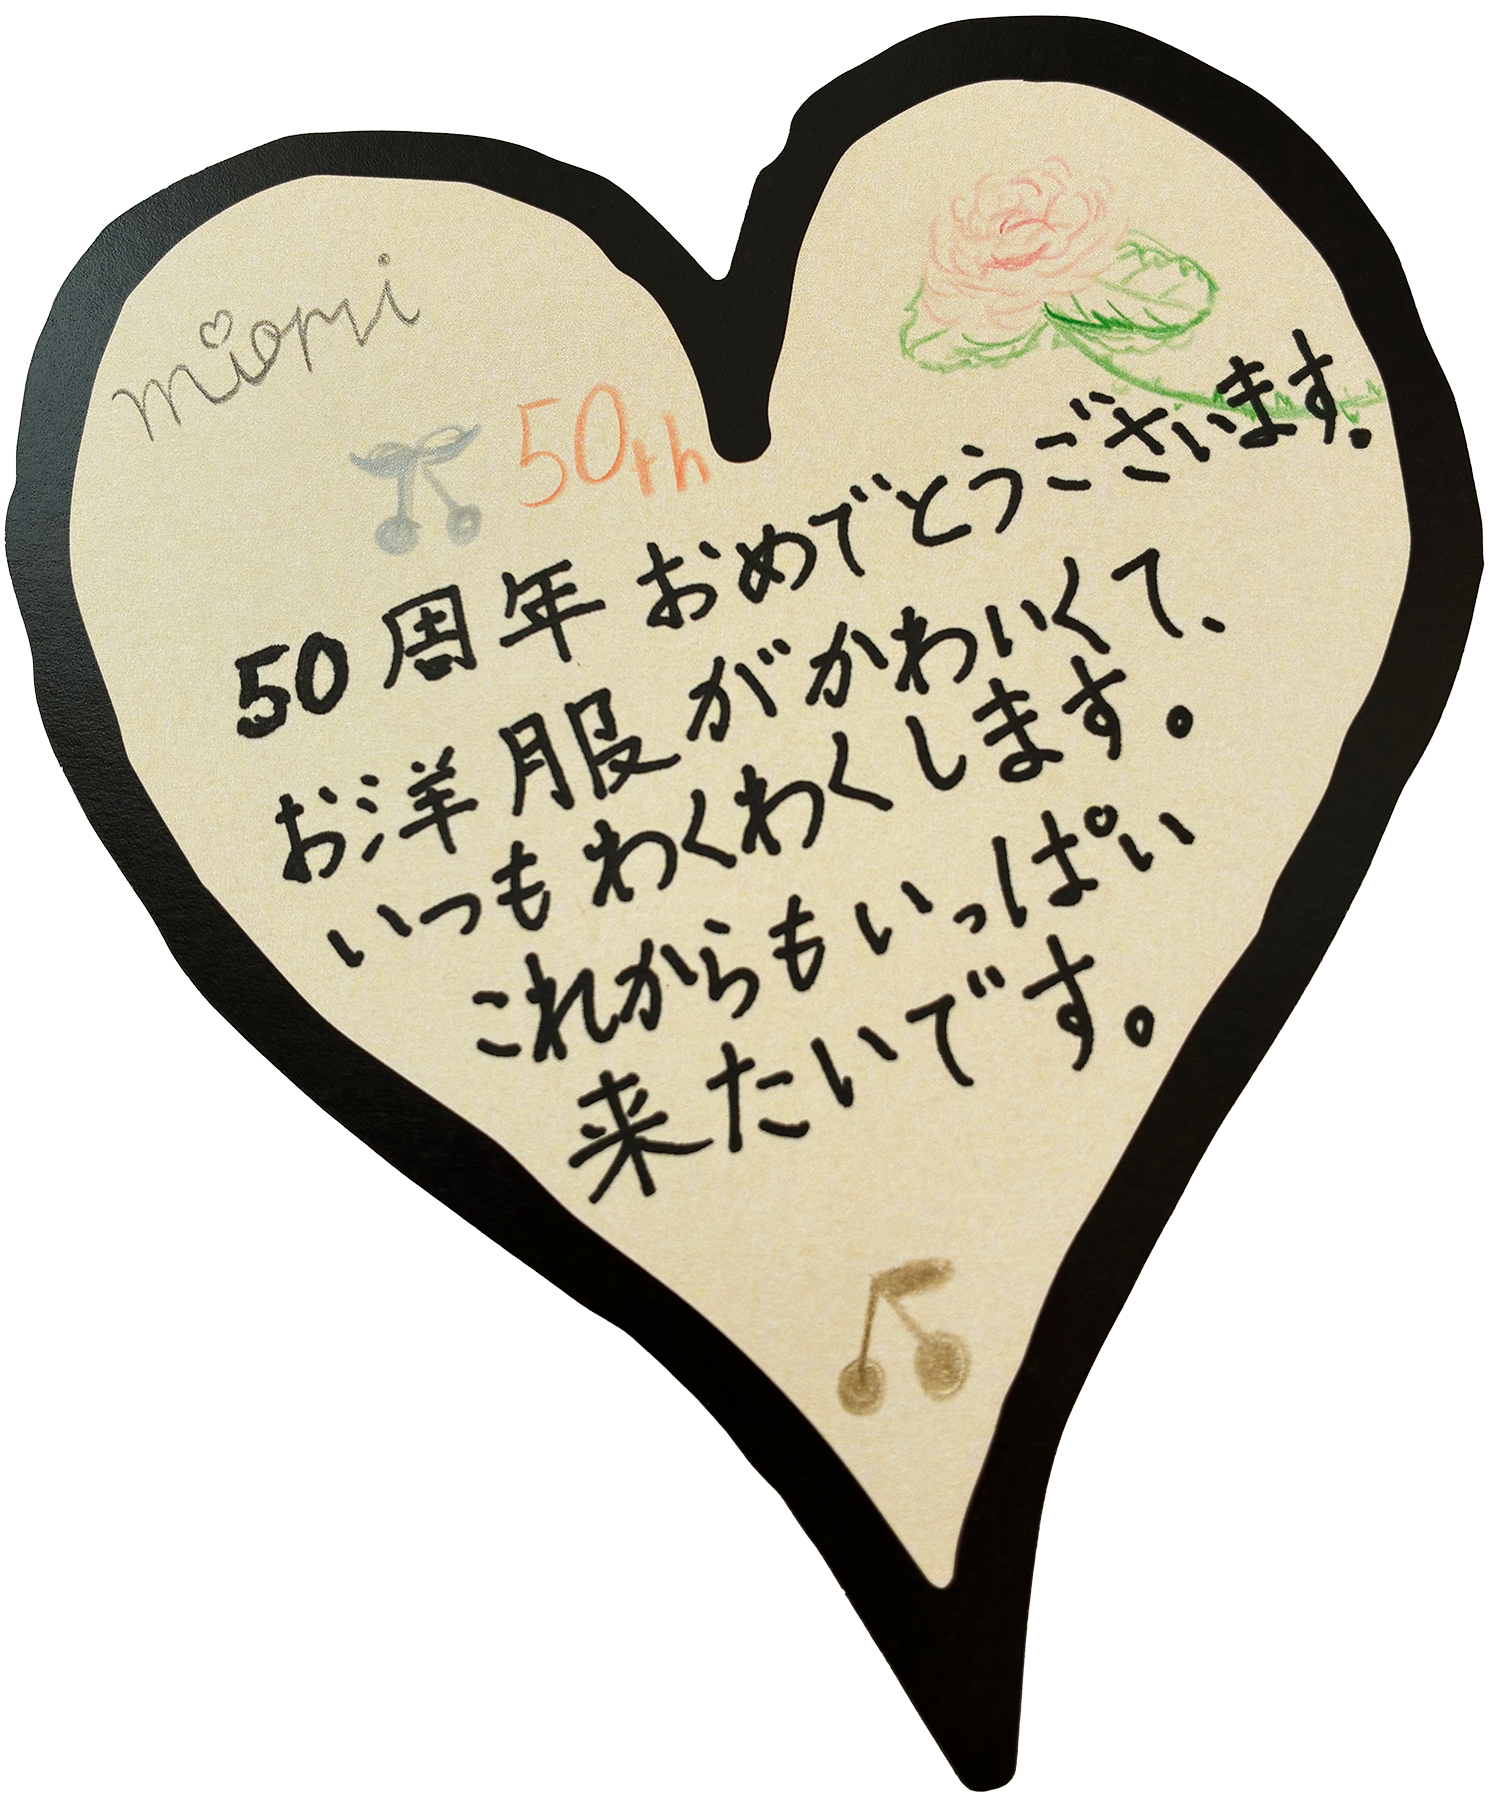 miomi
50th
50周年 おめでとうございます。
お洋服がかわいくて、
いつもわくわくします。
これからもいっぱい
来たいです。